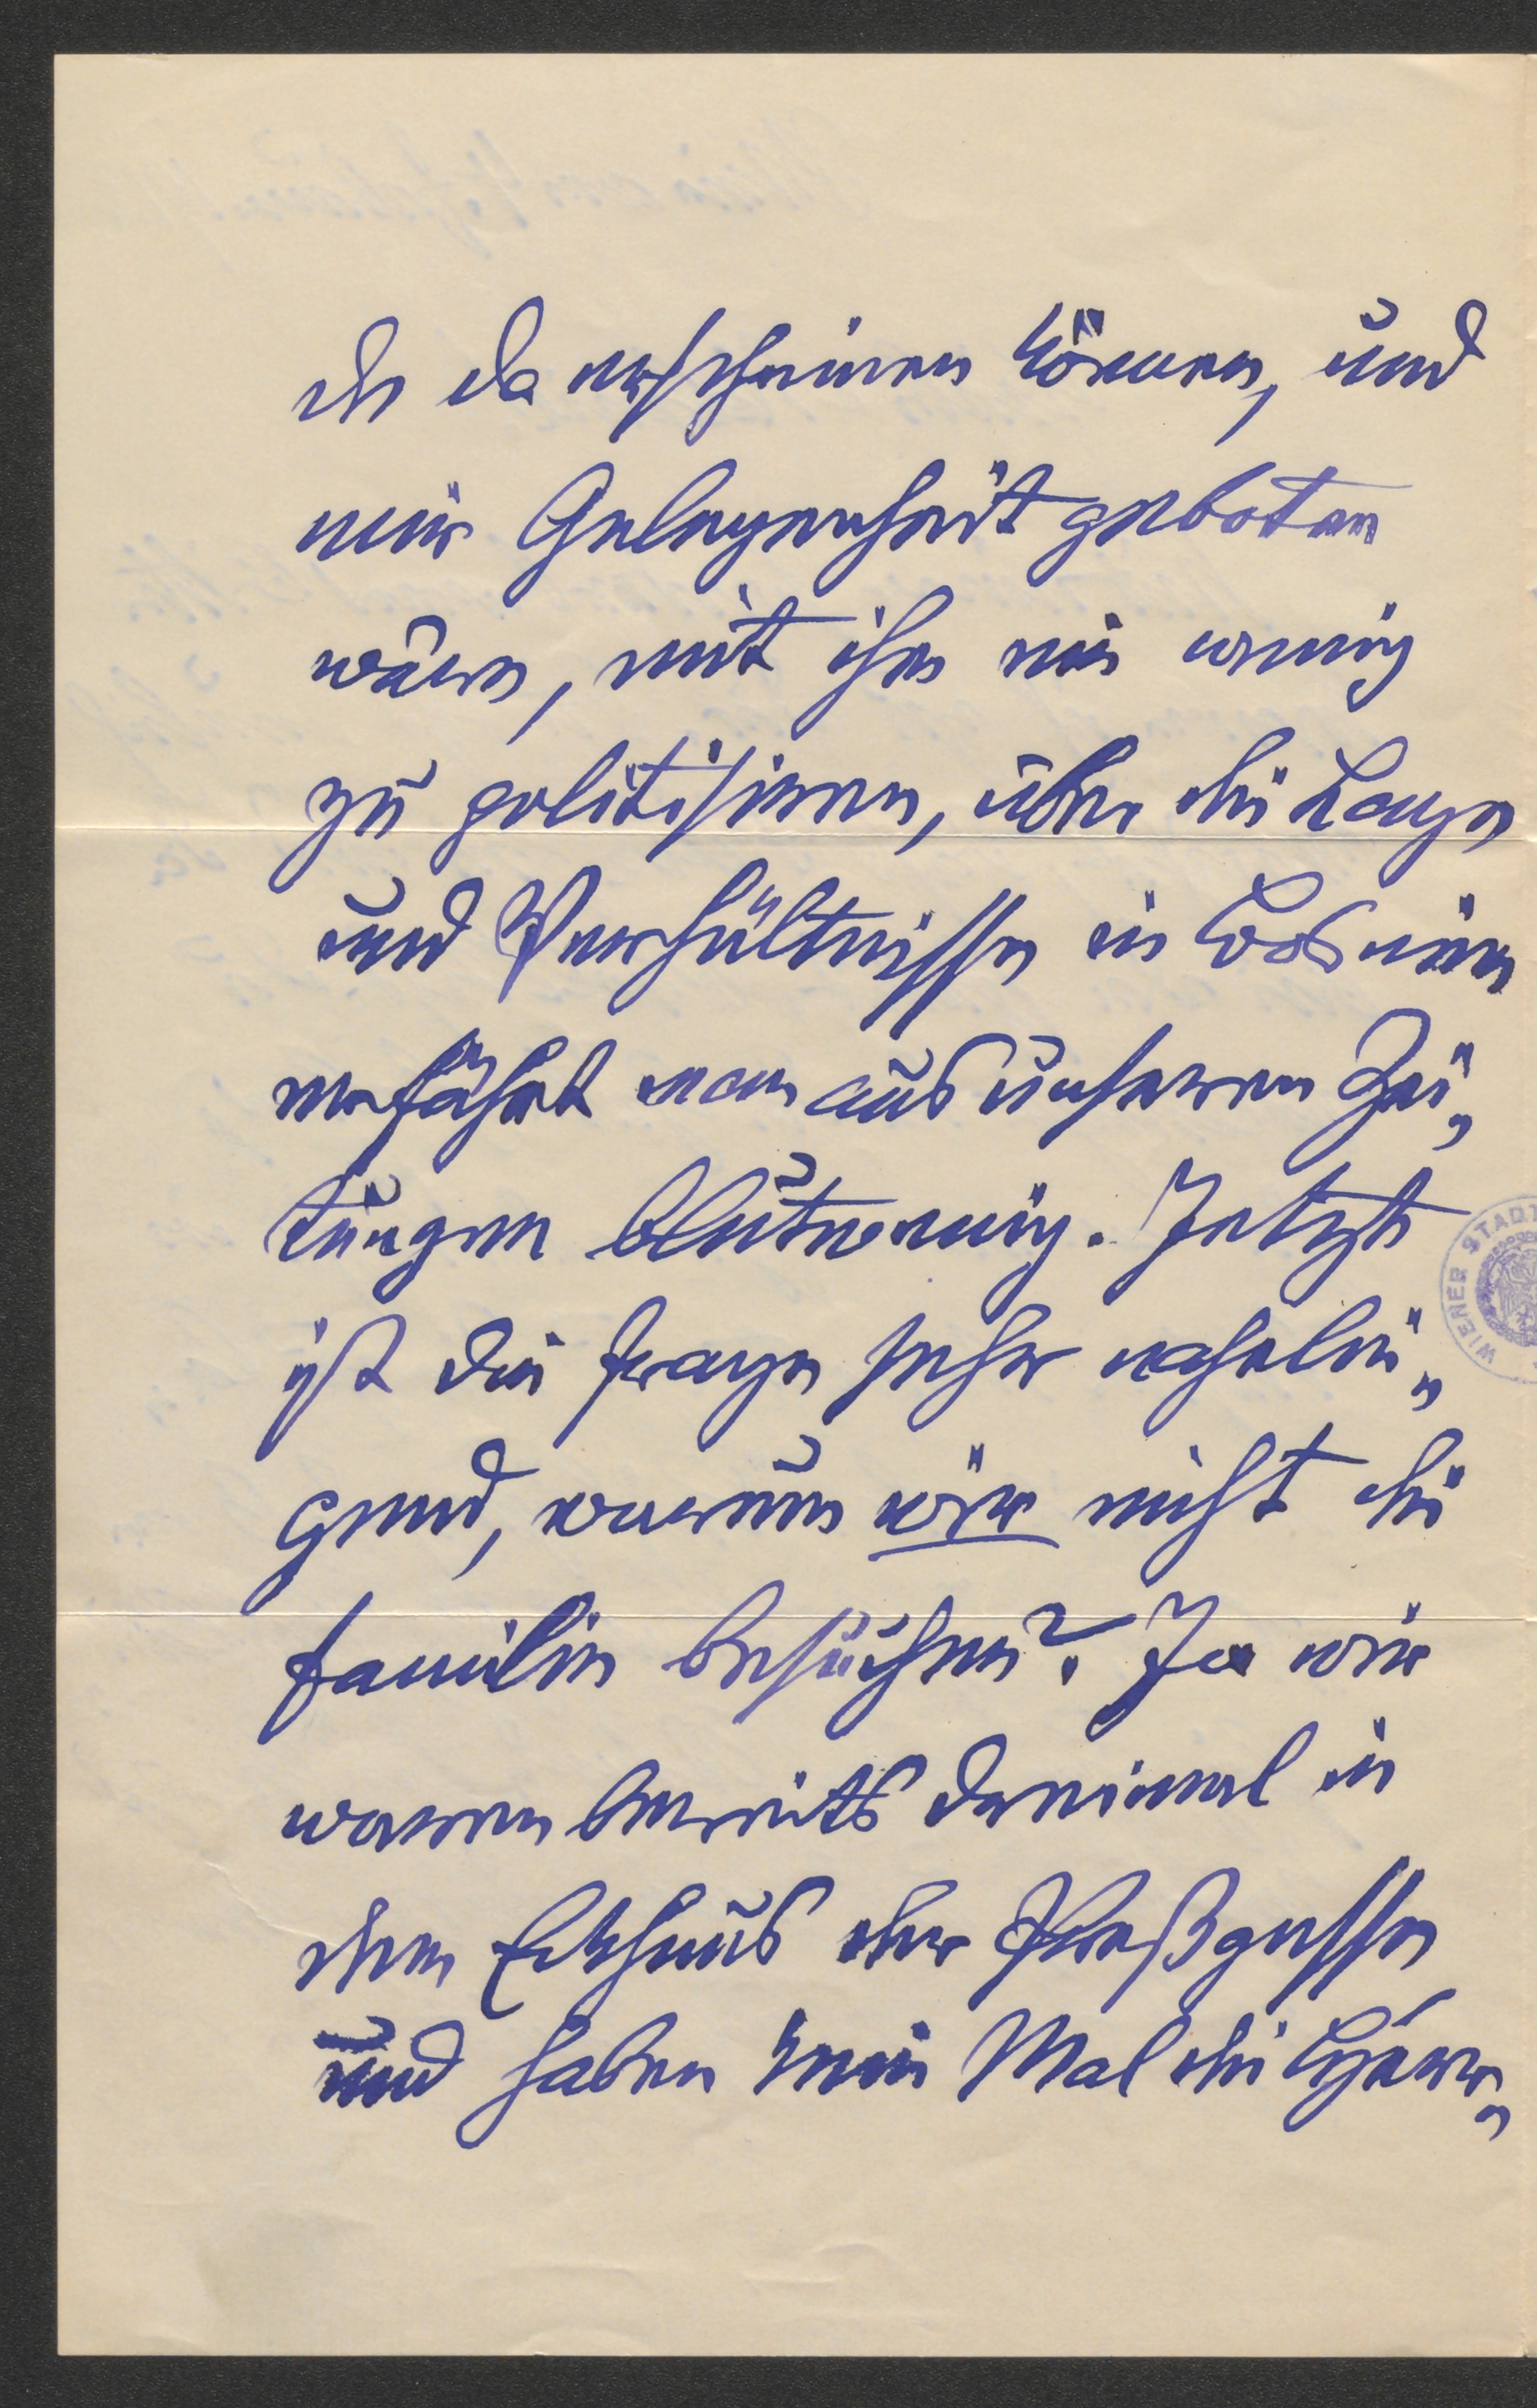 de da erscheinen können, und
mir Gelegenheit geboten
wäre, mit ihm ein wenig
zu politisieren, über die Lage
und Verhältnisse in Bosnien
erfährt man aus unseren Zei„
tungen blutwenig. Jetzt
ist die Frage sehr nahelie„
gend, warum wir nicht die
Familie besuchen? Ja wir
waren bereits dreimal in
dem Eckhaus der
und haben kein Mal die
WIENER STADT